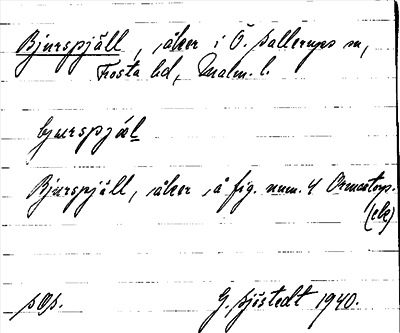 Bjurspjäll, åker i Ö. Sallerups sn,
Frosta hd, Malm. l.
bjurspjæl
Bjurspjäll, åker å fig. num. 4 Ormastorp.
(ek)
sgs.
G. Sjöstedt 1940.